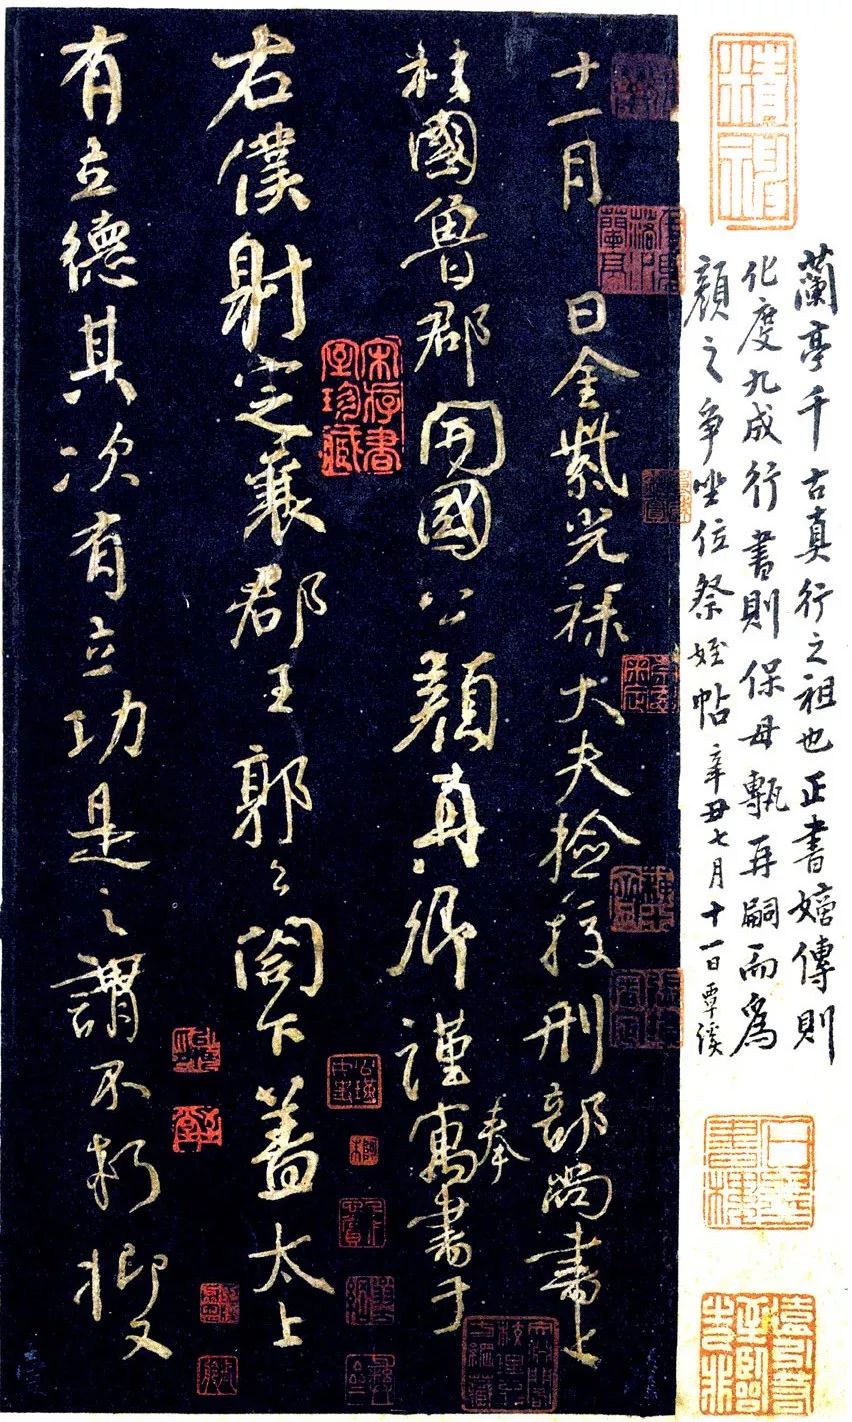 蘭亭千古真行之祖也正書嫡傳則
化度九成行書則保母甎再嗣而爲
顏之爭坐位祭姪帖辛丑七月十一日覃溪
十一月 日金紫光祿大夫檢挍刑部尚書上
柱國魯郡開國公顏真卿謹寓書于
奉
右僕射定襄郡王郭公閤下蓋太上
有立德其次有立功是之謂不朽抑又
宋存書室珍藏